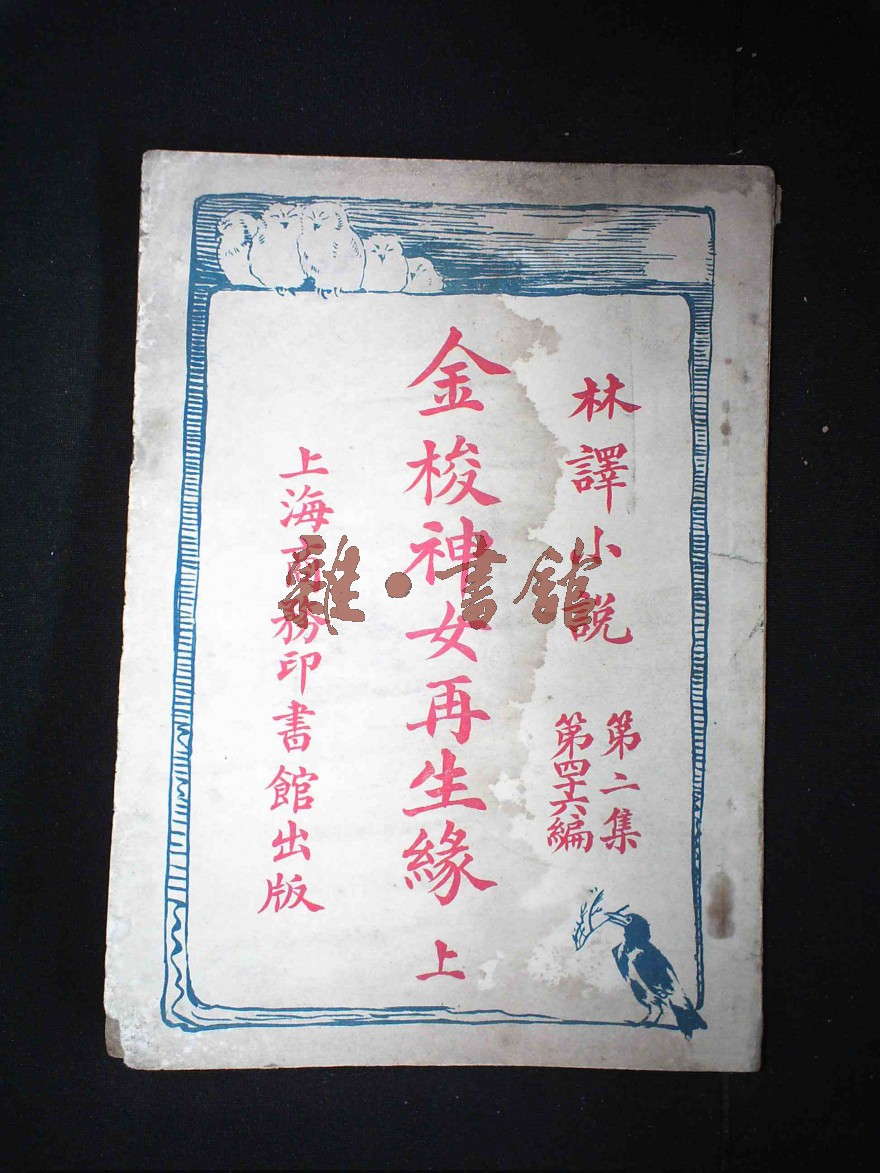 林譯小説
第二集
第四十六編
金梭神女再生緣 上
上海商務印書館出版
雜·書館